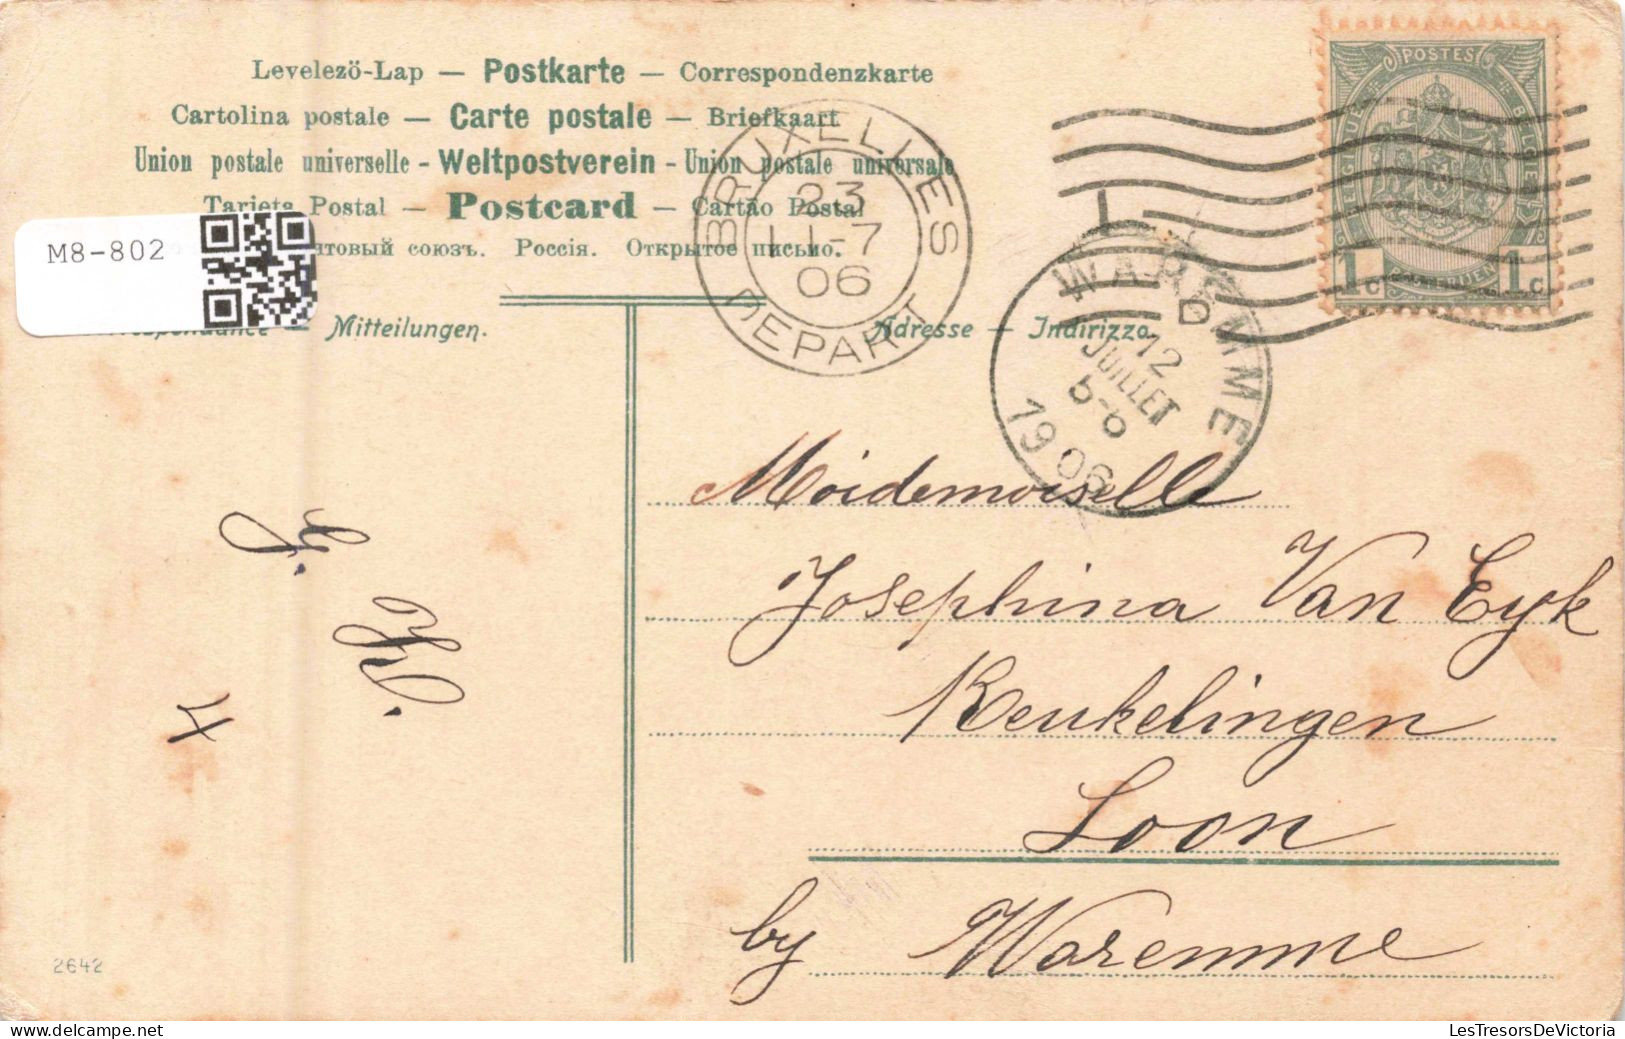 Levelezö-Lap — Postkarte — Correspondenzkarte
Cartolina postale — Carte postale — Briefkaart
Union postale universelle - Weltpostverein - Union postale universale
Tarjeta Postal — Postcard — Cartão Postal
M8-802
союзъ. Россія. Открытое письмо.
Mitteilungen.
Adresse — Indirizzo.
BRUXELLES
23
11-7
06
DEPART
WAREMME
D
12
JUILLET
1906
POSTES
BELGIQUE
BELGIE
1 c
1 c
Moidemoiselle
Josephina Van Eyk
Keukelingen
Loon
by Waremme
4
2642
LesTresorsDeVictoria